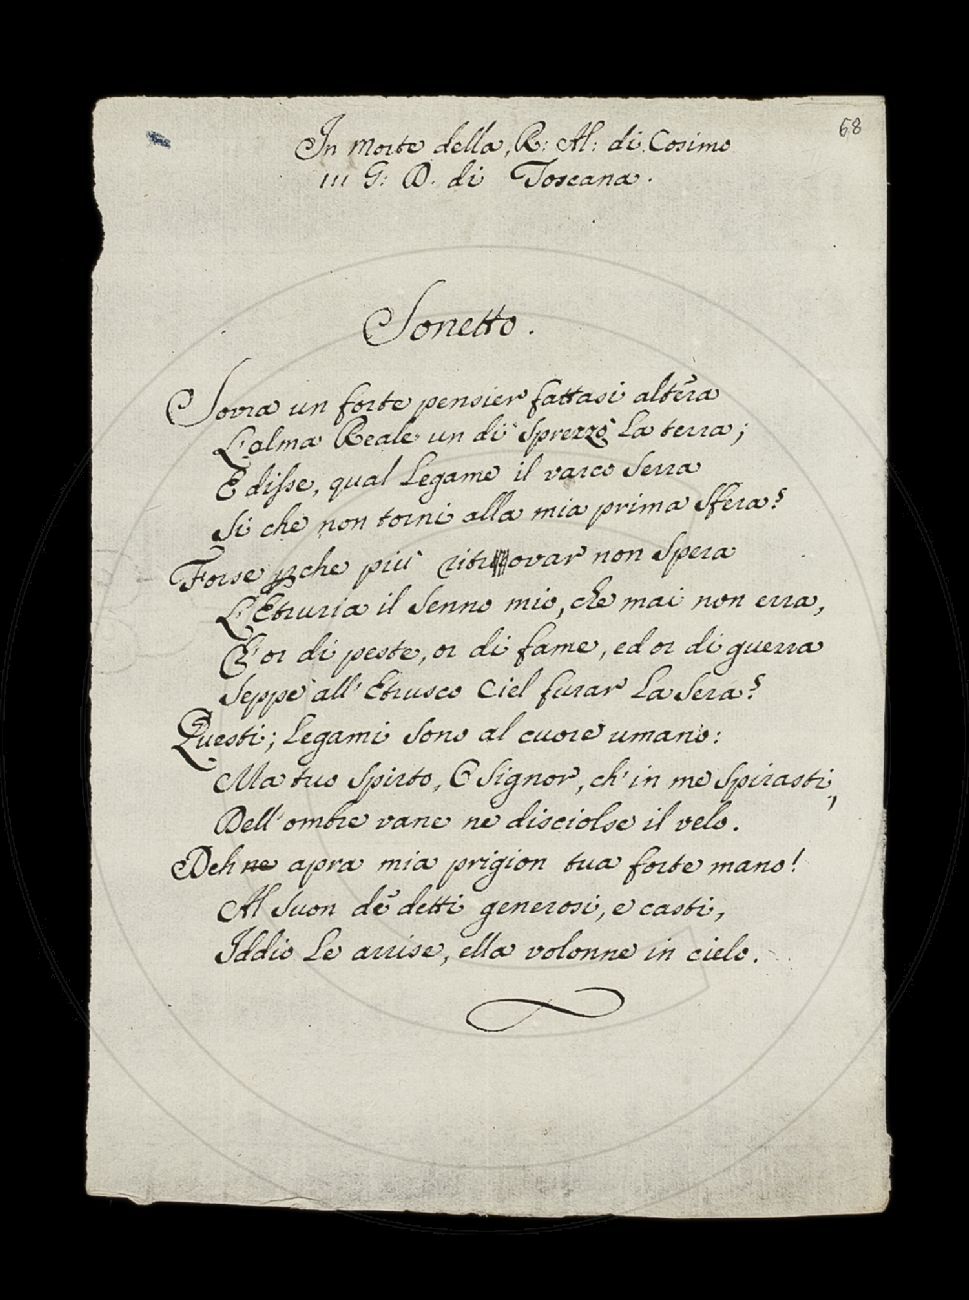 68
In morte della R: Al: di Cosimo
III G: D. di Toscana.
Sonetto.
Sovra un forte pensier fattasi altéra
L'alma Reale un dì sprezzò La terra;
E disse, qual Legame il varco serra
Si che non torni alla mia prima sfera?
Forse pche più ritrovar non spera
L'Etruria il senno mio, che mai non erra,
E or di peste, or di fame, ed or di guerra
Seppe all'Etrusco Ciel furar La sera?
Questi; Legami sono al cuore umano:
Ma tuo spirto, O Signor, ch'in me spirasti,
Dell'ombre vane ne disciolse il velo.
Deh ne apra mia prigion tua forte mano!
Al suon dè detti generosi, e casti,
Iddio Le arrise, ella volonne in cielo.